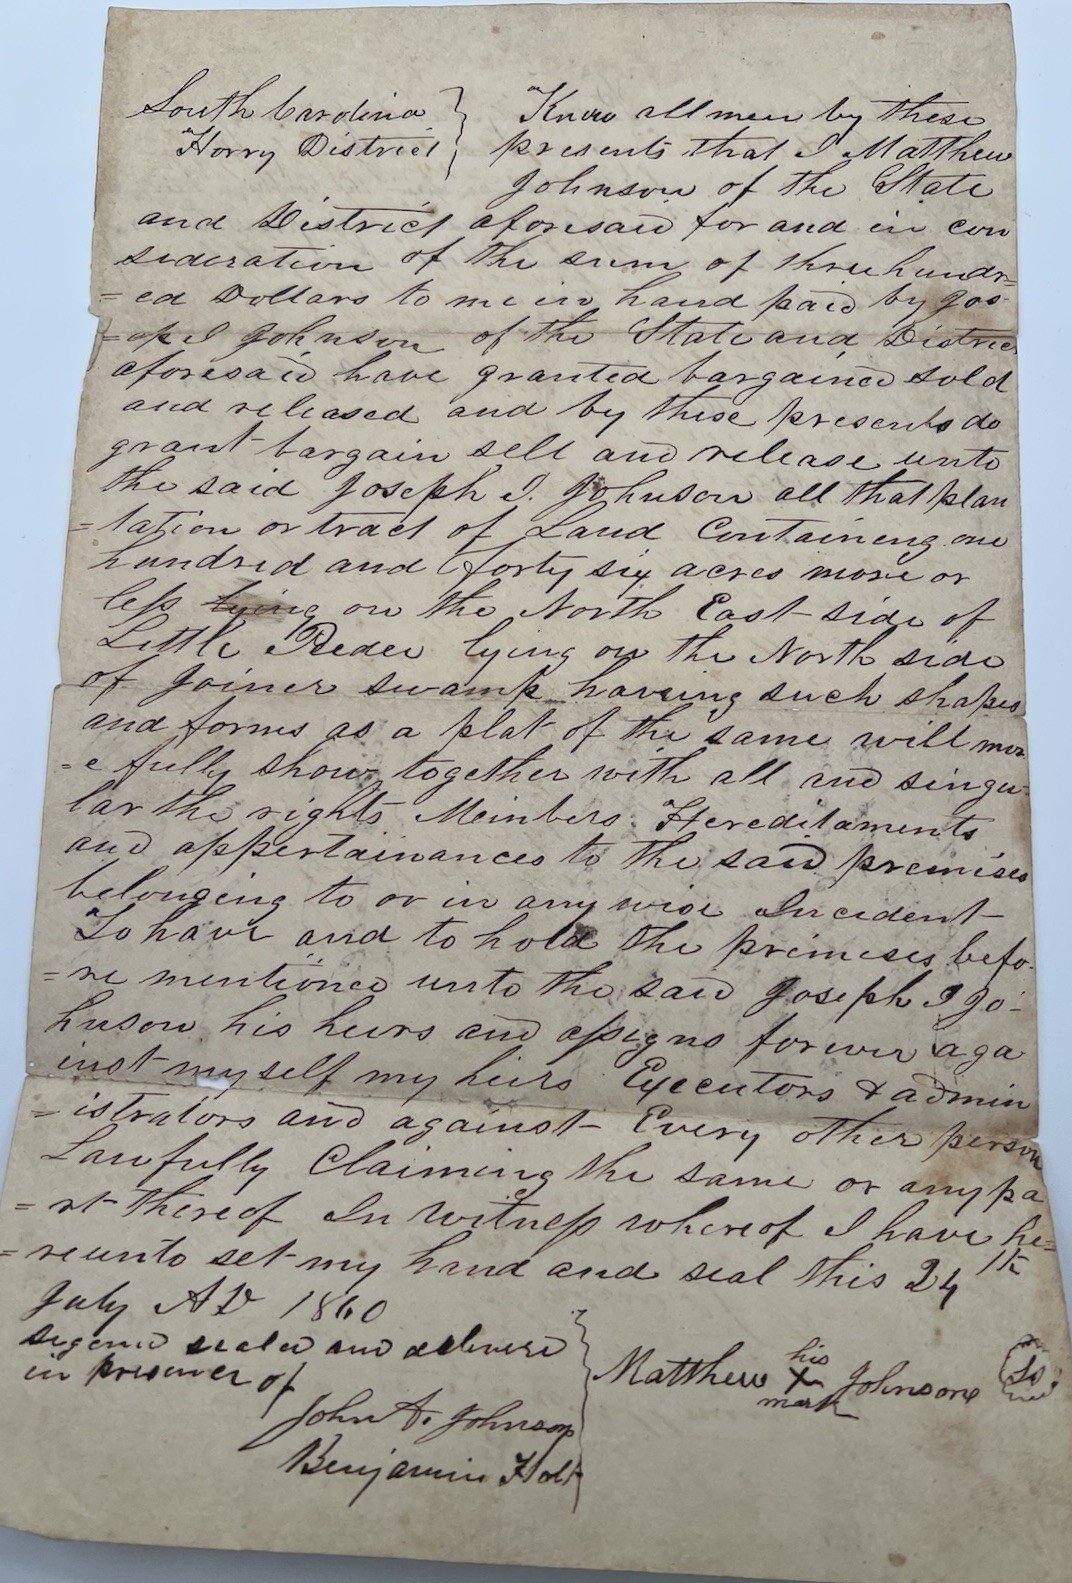 South Carolina } Know all men by these
Horry District } presents that I Matthew
Johnson of the State
and District aforesaid for and in con
sideration of the sum of three hundr=
=ed Dollars to me in hand paid by Jos
=eph J Johnson of the State and District
aforesaid have granted bargained sold
and released and by these presents do
grant bargain sell and release unto
the said Joseph J. Johnson all that plan
=tation or tract of Land Containeng one
hundred and forty six acres more or
less lying on the North East side of
Little Pedee lying on the North side
of Joiner swamp haveing such shapes
and forms as a plat of the same will mor
=e fully show together with all and singu-
lar the rights Members Hereditaments
and appertainances to the said premises
belonging to or in any wise Incedent
To have and to hold the premises befo-
=re mentioned unto the said Joseph J Jo-
hnson his heirs and assigns forever aga
inst my self my heirs Executors & admin
=istrators and against Every other person
Lawfully Claiming the same or any pa
=rt thereof In Witness whereof I have he=
=reunto set my hand and seal this 24th
July AD 1860
Signed sealed and delivered } Matthew his X mark Johnson LS
in presence of
John A. Johnson
Benjamin Holt